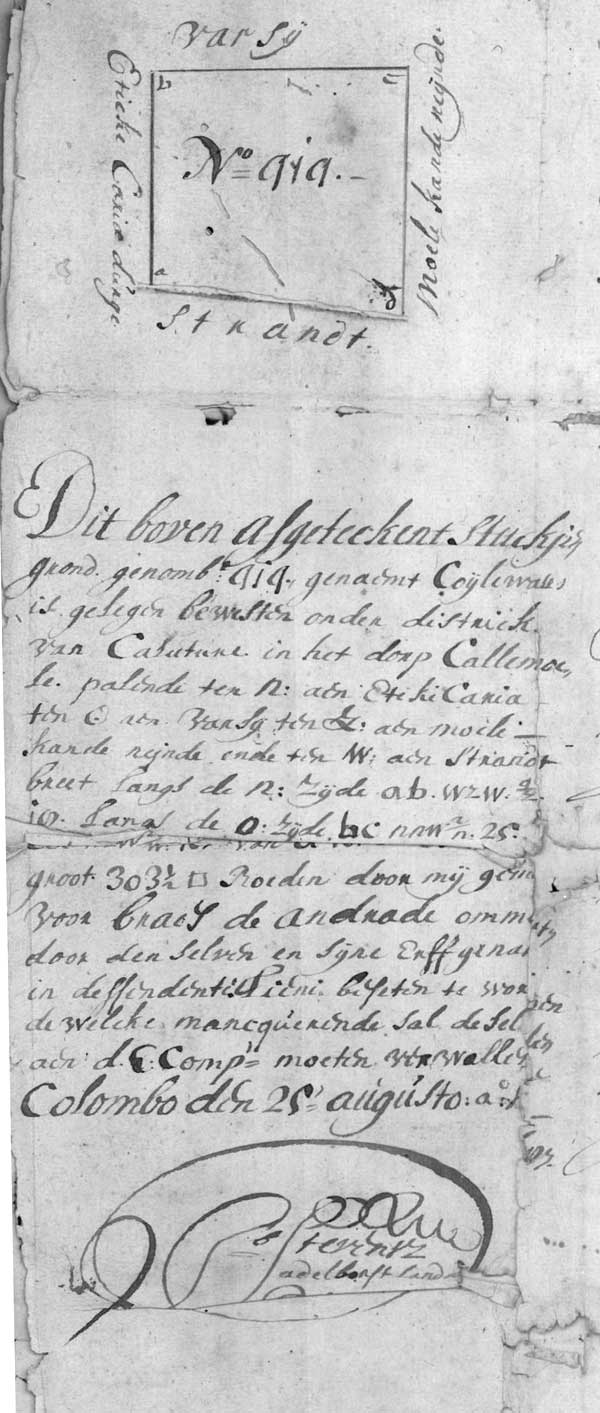 van sÿ
Etieke Caria dúrge
b
c
No 919.
a
d
Moeli kande neÿnde.
Strandt.
Dit boven afgeteekent Stuckje
grond genombr 919, genaemt Coÿlewatte
is gelegen bewesten onder district
van Caluture in het dorp Callemoe,
le. palende ten N: aen Etiki Caria
ten O aen Van Sy ten Z: aen moeli
kande neÿnde ende ten W: aen Strandt
breet langs de N: Zÿde ab. WZW.
langs de O: Zÿde bc NNW 25.
groot 303½ □ Roeden door mÿ
voor braes de andrade omme
door den selven en sÿne Erffgena
in deffendenti Lieni beseten te wor
de welke mancquerende sal de sel
aen d. E: Compe moeten vervallen
Colombo den 25 augústo: ao:
Stevensz
adelborst land